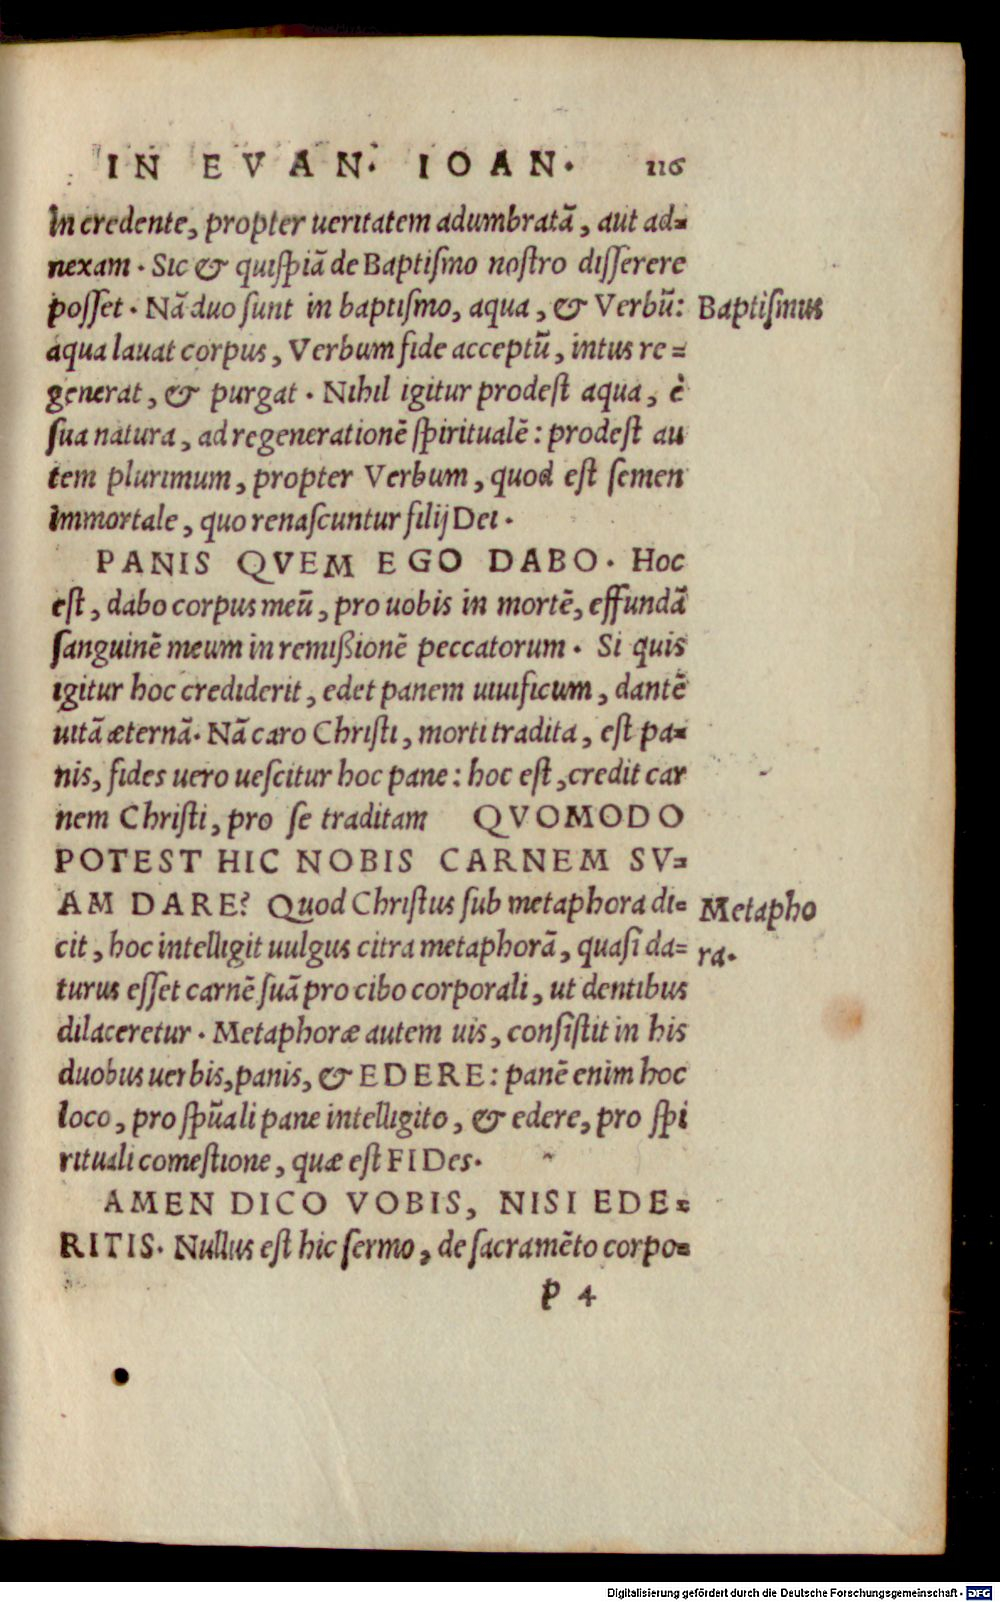 IN EVAN. IOAN. 116
in credente, propter ueritatem adumbratã, aut ad=
nexam. Sic & quiſpiã de Baptiſmo noſtro diſſerere
poſſet. Nã duo ſunt in baptiſmo, aqua, & Verbũ:
Baptiſmus
aqua lauat corpus, Verbum fide acceptũ, intus re=
generat, & purgat. Nihil igitur prodeſt aqua, è
ſua natura, ad regenerationẽ ſpiritualẽ: prodeſt au
tem plurimum, propter Verbum, quod eſt ſemen
immortale, quo renaſcuntur filij Dei.
PANIS QVEM EGO DABO. Hoc
eſt, dabo corpus meũ, pro uobis in mortẽ, effundã
ſanguinẽ meum in remißionẽ peccatorum. Si quis
igitur hoc crediderit, edet panem uiuificum, dantẽ
uitã æternã. Nã caro Chriſti, morti tradita, eſt pa=
nis, fides uero ueſcitur hoc pane: hoc eſt, credit car
nem Chriſti, pro ſe traditam QVOMODO
POTEST HIC NOBIS CARNEM SV=
AM DARE? Quod Chriſtus ſub metaphora di=
Metapho
cit, hoc intelligit uulgus citra metaphorã, quaſi da=
ra.
turus eſſet carnẽ ſuã pro cibo corporali, ut dentibus
dilaceretur. Metaphoræ autem uis, conſiſtit in his
duobus uerbis, panis, & EDERE: panẽ enim hoc
loco, pro ſpũali pane intelligito, & edere, pro ſpi
rituali comeſtione, quæ eſt FIDes.
AMEN DICO VOBIS, NISI EDE=
RITIS. Nullus eſt hic ſermo, de ſacramẽto corpo=
P 4
Digitalisierung gefördert durch die Deutsche Forschungsgemeinschaft - DFG